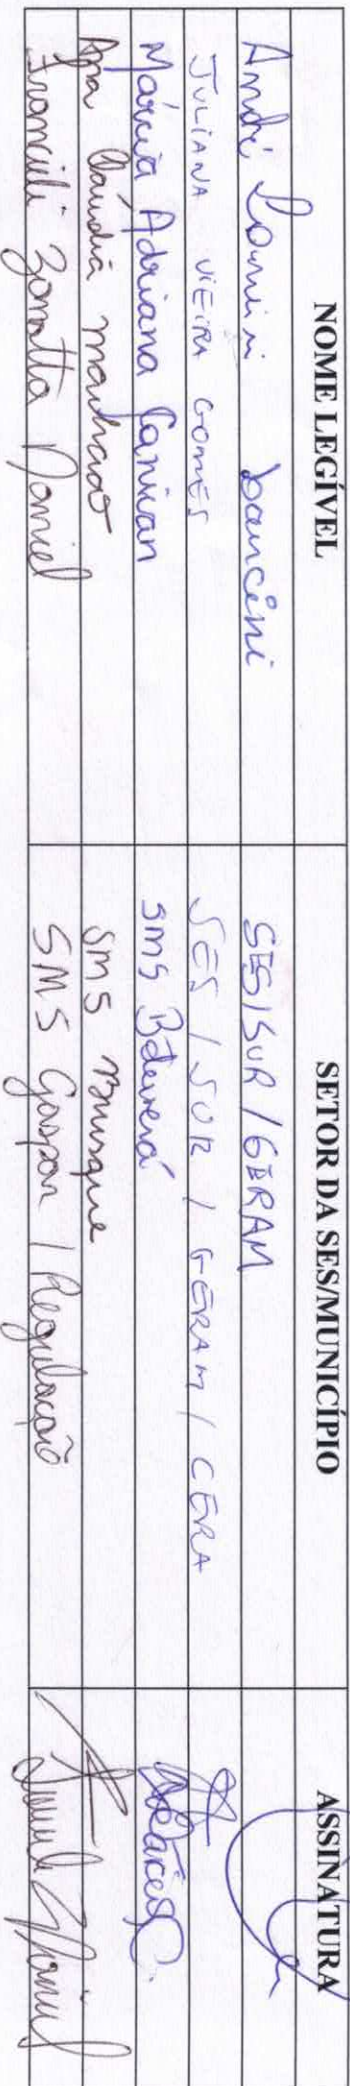 NOME LEGÍVEL SETOR DA SES/MUNICÍPIO ASSINATURA
André bancini SES/SUR/GERAM
JULIANA VIEIRA GOMES SES / SUR / GERAM / CERA
Márcia Adriana Cansian SMS Botuverá
Ana Claudia Machado SMS Brusque
Francieli Zonatta Daniel SMS Gaspar / Regulação